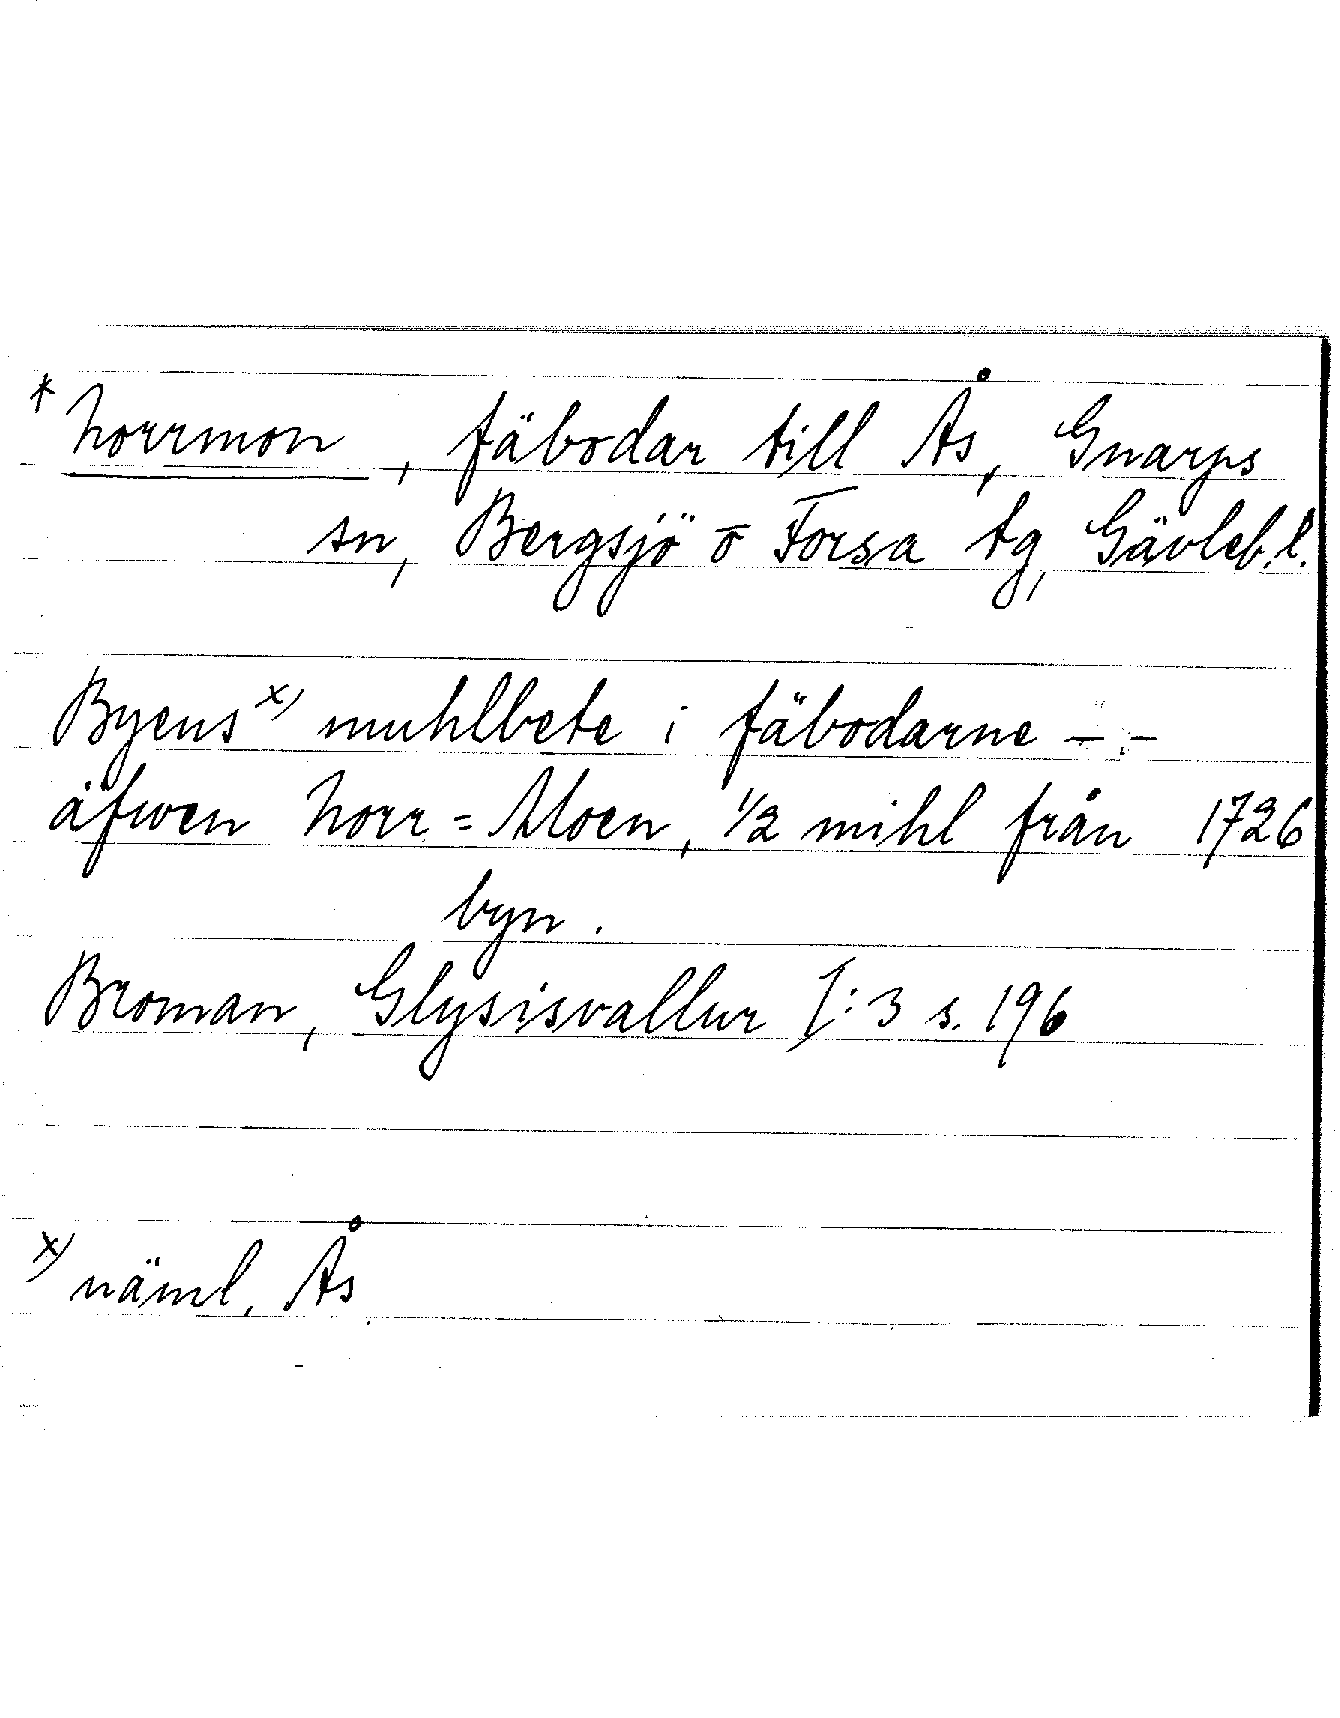 * Norrmon, fäbodar till Ås, Gnarps
sn, Bergsjö o Forsa tg, Gävleb. l.
Byens x) muhlbete i fäbodarne - -
äfwen Norr=Moen, 1/2 mihl från 1726
byn.
Broman, Glysisvallur I:3 s. 196
x) näml. Ås